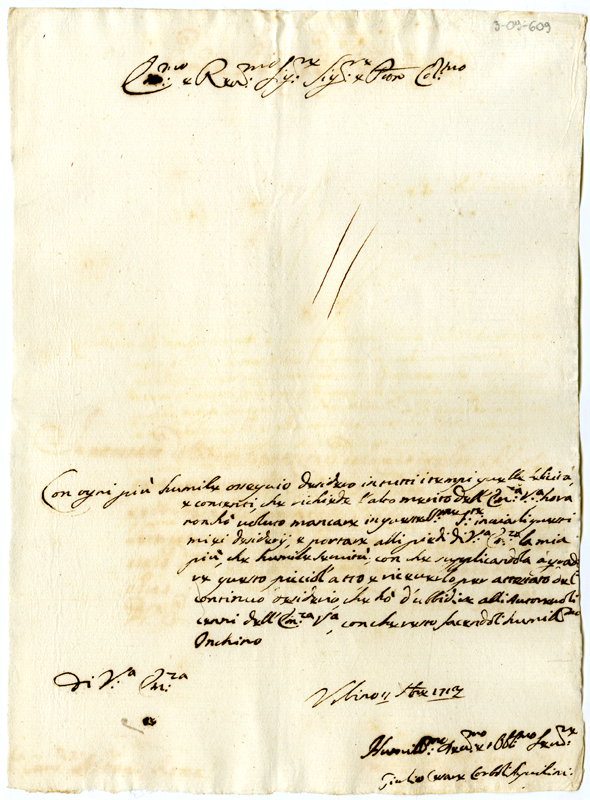 3-09-609
Em:mo e Reu:mo Sig:re Sig:re e Pron Col:mo
Con ogni più humile ossequio desidero in tutti i tempi quelle felicità,
e contenti che richiede l'alto merito dell'Em:za V:ra hora
non hò voluto mancare in queste
miei desiderij, e portare alli piedi di V:ra Em:za la mia
più che humile seruitù, con che supplicandola à gradi-
re questo picciol atto, e riceuerlo per attestato del
continuo desiderio che hò d'ubbidire alli
cenni dell'Em:za V:ra, con che resto facendoli humiliss:mo
Inchino
Di V:ra Em:za
Vrbino 11
Humiliss:mo Deu:mo et Obl:mo Ser:re
Giulio Cesare